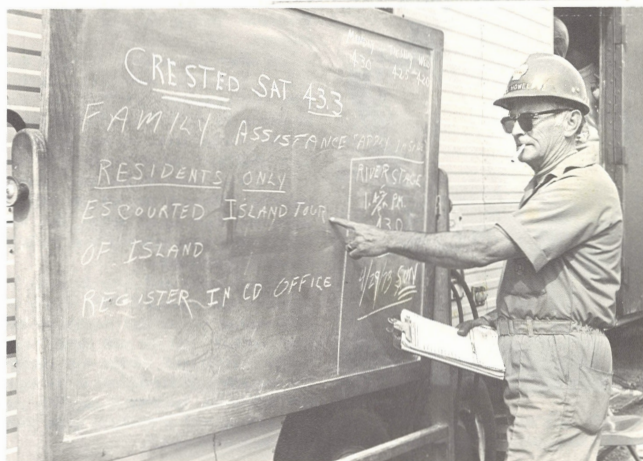 CRESTED SAT 43.3
FAMILY ASSISTANCE
RESIDENTS ONLY
ESCOURTED ISLAND TOUR
OF ISLAND
REGISTER IN CD OFFICE
RIVER STAGE
430
4/29/73 SUN